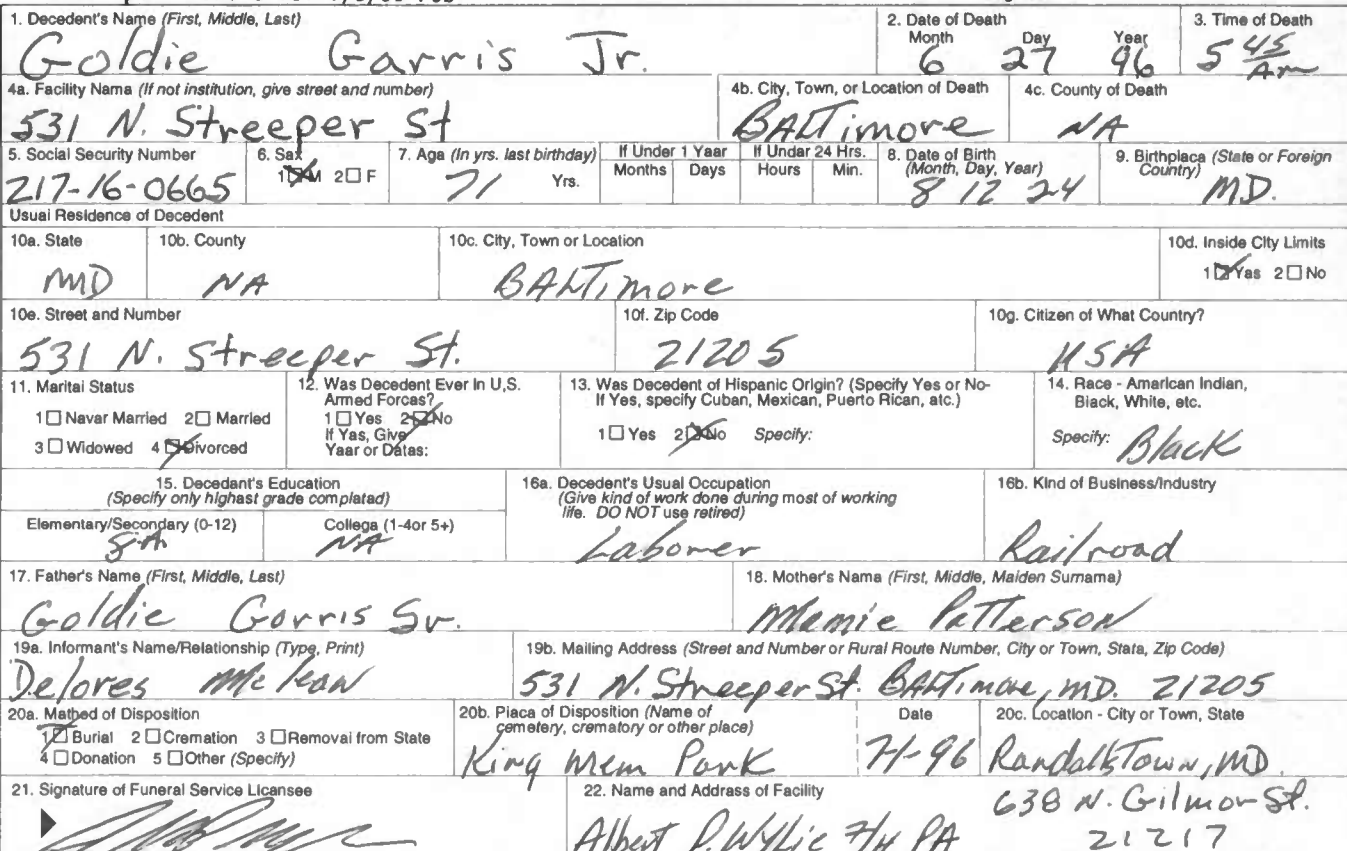 1. Decedent's Name (First, Middle, Last)
Goldie Garris Jr.
2. Date of Death
Month Day Year
6 27 96
3. Time of Death
5 45 Am
4a. Facility Name (If not institution, give street and number)
531 N. Streeper St
4b. City, Town, or Location of Death
BALTimore
4c. County of Death
NA
5. Social Security Number
217-16-0665
6. Sex
1 M 2 F
7. Age (In yrs. last birthday)
71 Yrs.
If Under 1 Year
Months Days
If Under 24 Hrs.
Hours Min.
8. Date of Birth
(Month, Day, Year)
8 12 24
9. Birthplace (State or Foreign
Country)
MD.
Usual Residence of Decedent
10a. State
MD
10b. County
NA
10c. City, Town or Location
BALTimore
10d. Inside City Limits
1 Yes 2 No
10e. Street and Number
531 N. Streeper St.
10f. Zip Code
21205
10g. Citizen of What Country?
USA
11. Marital Status
1 Never Married 2 Married
3 Widowed 4 Divorced
12. Was Decedent Ever In U.S.
Armed Forces?
1 Yes 2 No
If Yes, Give
Year or Dates:
13. Was Decedent of Hispanic Origin? (Specify Yes or No-
If Yes, specify Cuban, Mexican, Puerto Rican, etc.)
1 Yes 2 No Specify:
14. Race - American Indian,
Black, White, etc.
Specify: Black
15. Decedent's Education
(Specify only highest grade completed)
Elementary/Secondary (0-12)
College (1-4or 5+)
NA
16a. Decedent's Usual Occupation
(Give kind of work done during most of working
life. DO NOT use retired)
Laborer
16b. Kind of Business/Industry
Railroad
17. Father's Name (First, Middle, Last)
Goldie Garris Sr.
18. Mother's Name (First, Middle, Maiden Surname)
Mamie Patterson
19a. Informant's Name/Relationship (Type, Print)
Delores McLean
19b. Mailing Address (Street and Number or Rural Route Number, City or Town, State, Zip Code)
531 N. Streeper St. BALTimore, MD. 21205
20a. Method of Disposition
1 Burial 2 Cremation 3 Removal from State
4 Donation 5 Other (Specify)
20b. Place of Disposition (Name of
cemetery, crematory or other place)
King Mem Park
Date
7-1-96
20c. Location - City or Town, State
RandallsTown, MD.
21. Signature of Funeral Service Licensee
22. Name and Address of Facility
638 N. Gilmor St.
Albert P. Wylie F/H PA 21217